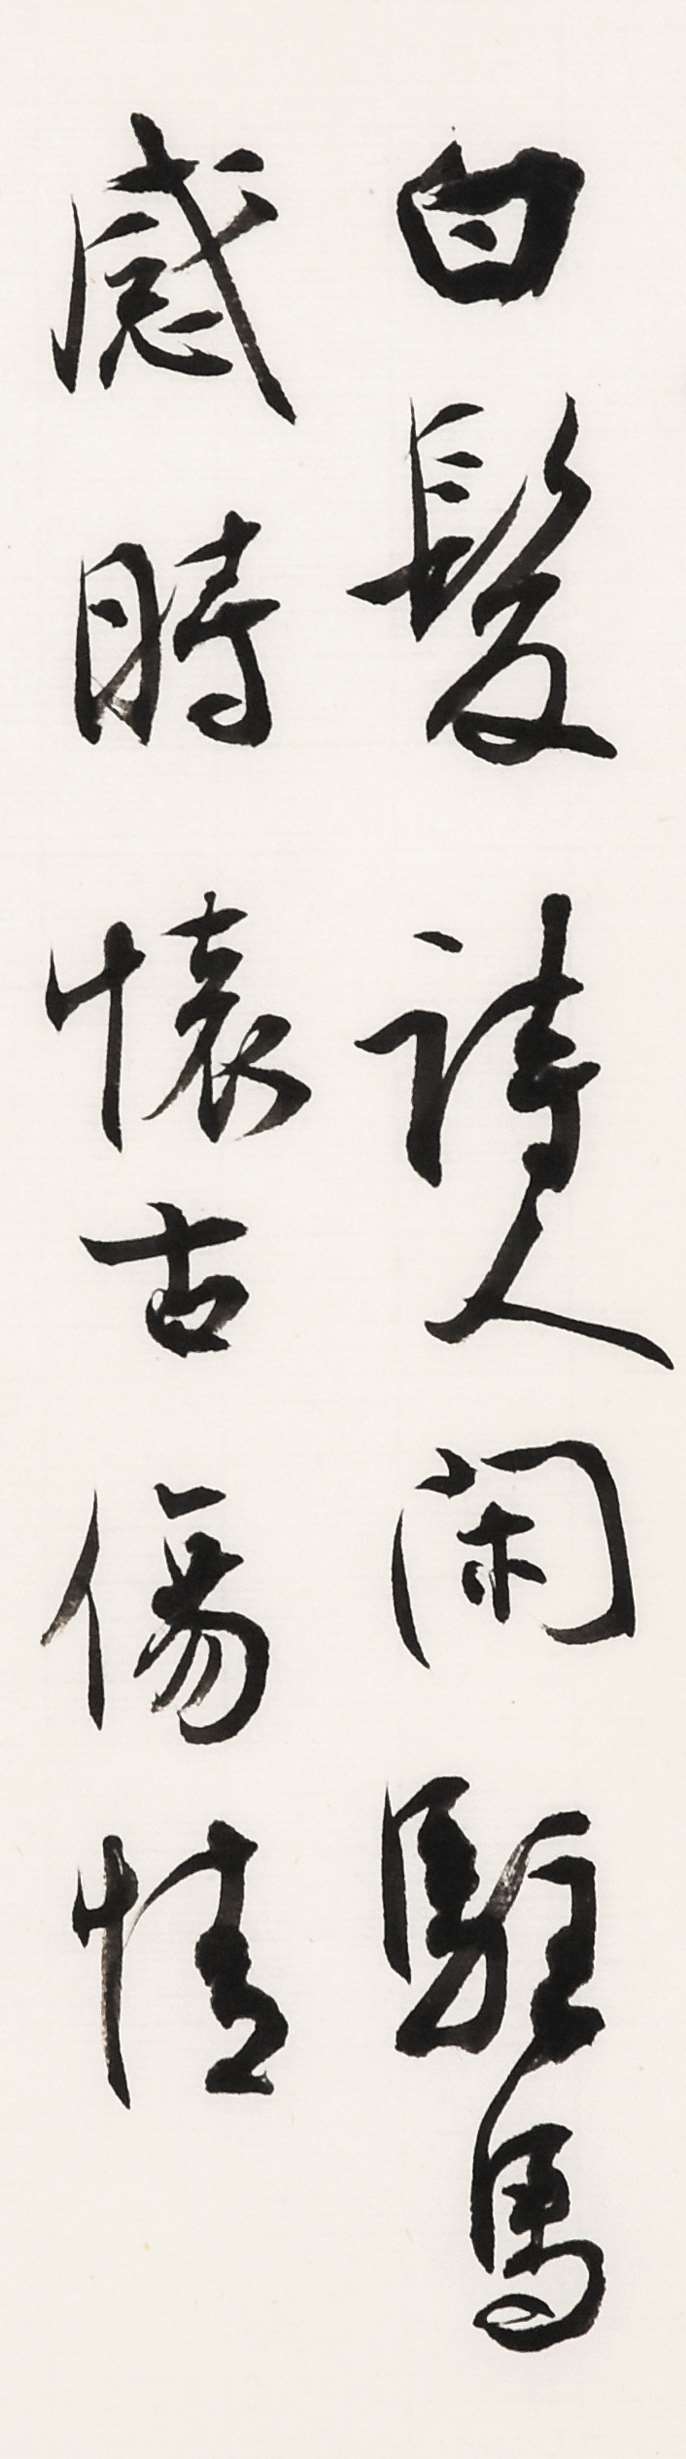 白髮詩人閑駐馬
感時懷古傷情